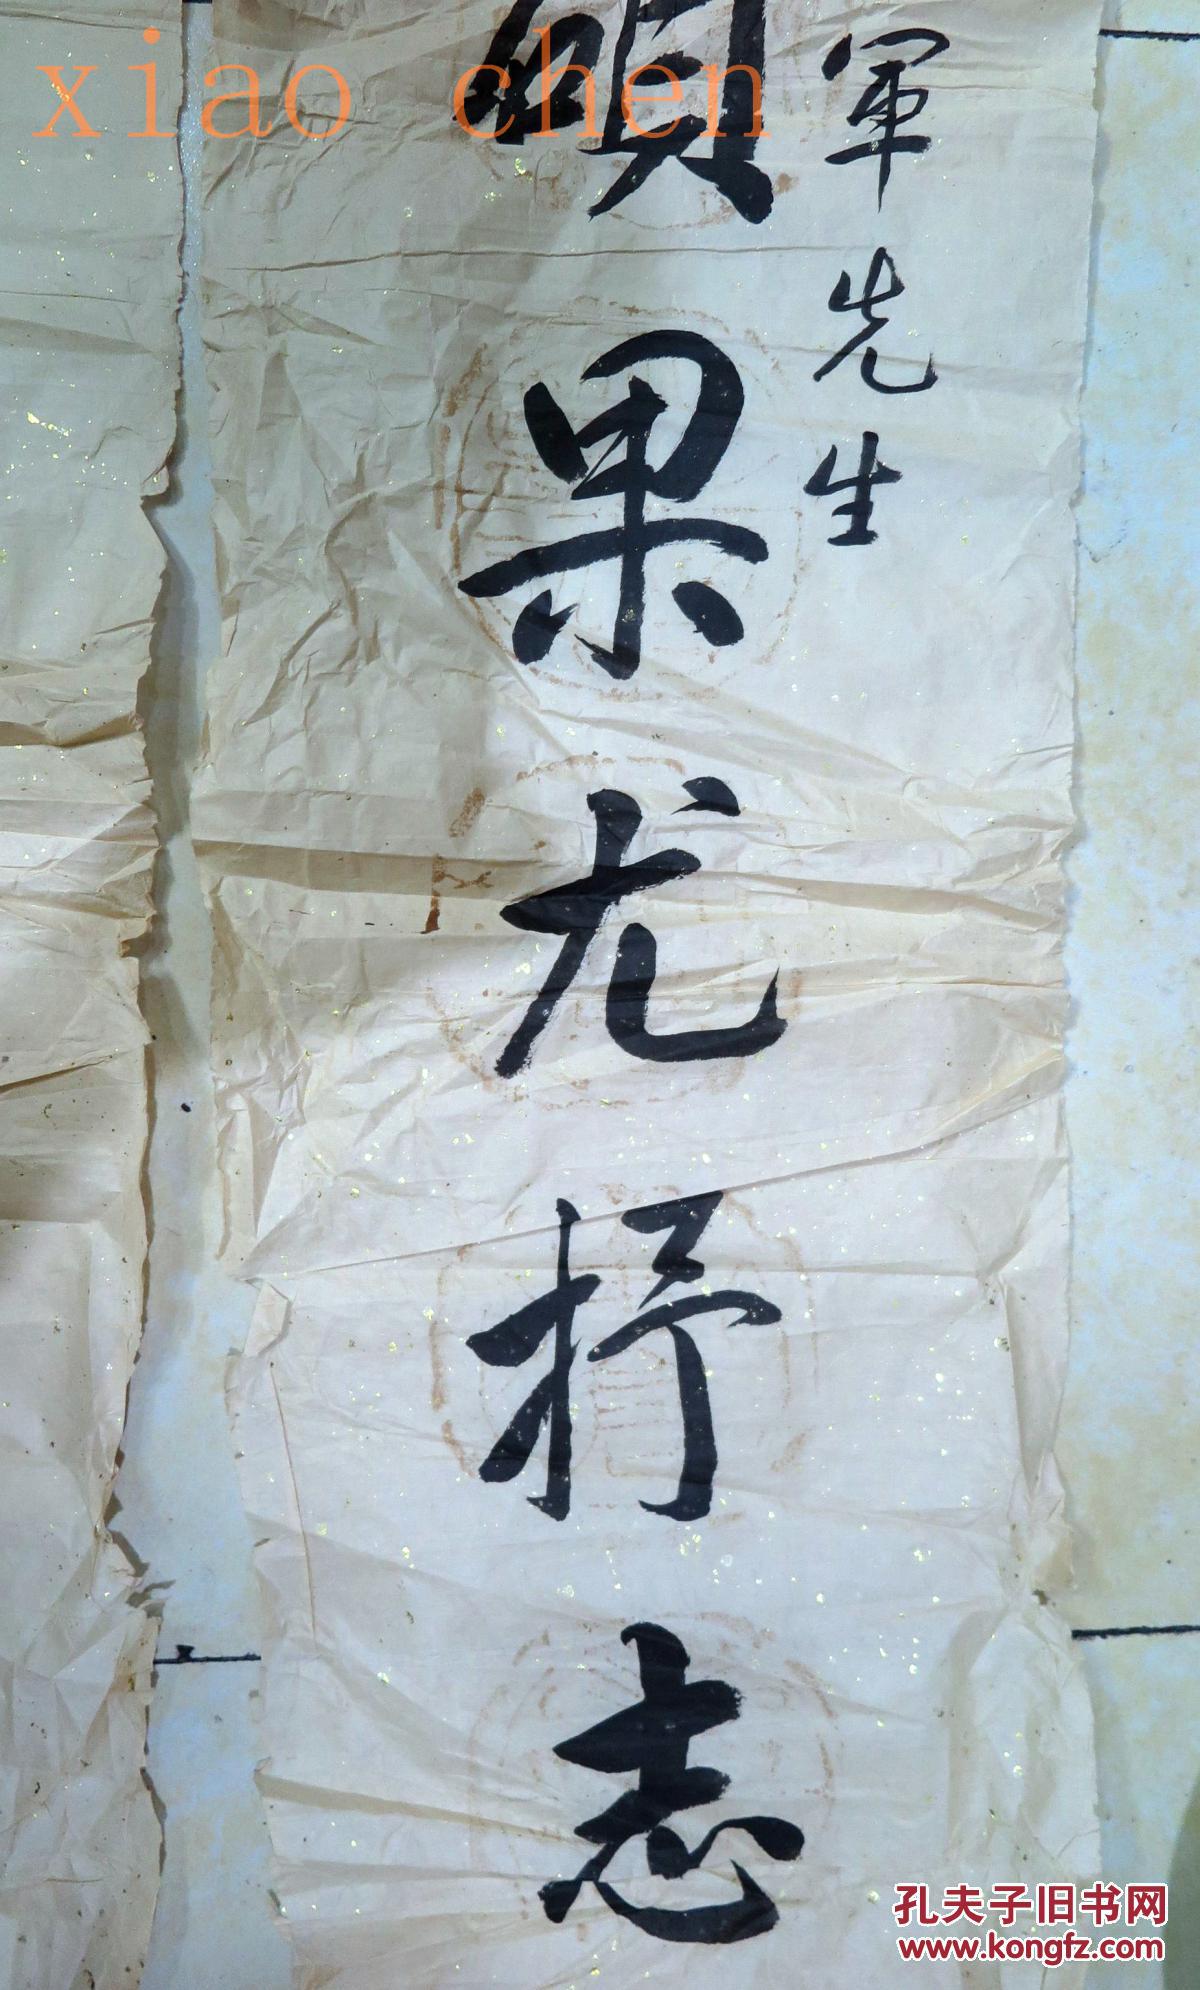 xiao chen
軍先生
碩果尤抒志
孔夫子旧书网
www.kongfz.com